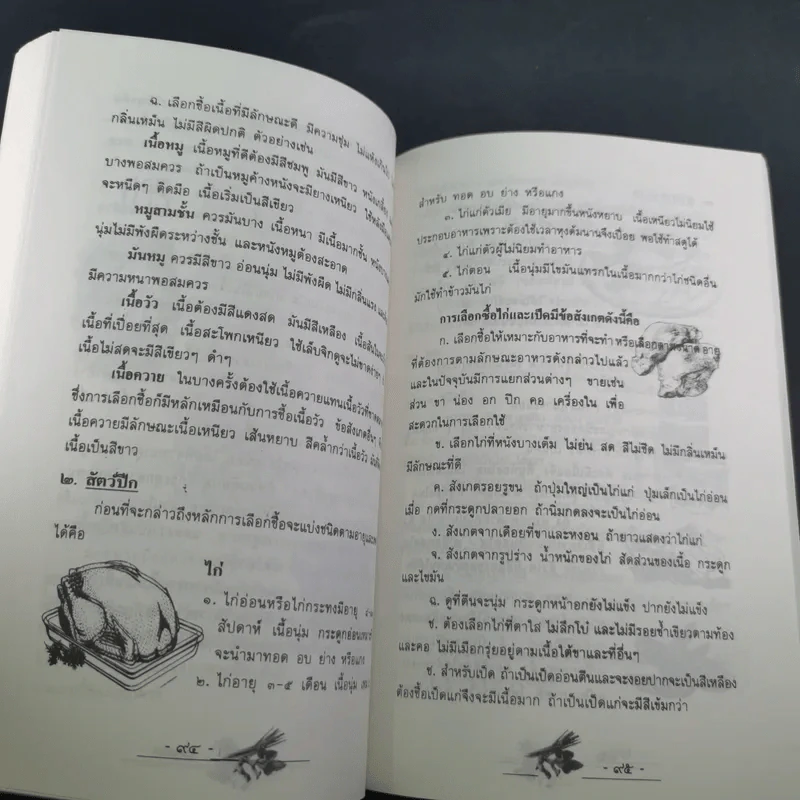 ฉ. เลือกซื้อเนื้อที่มีลักษณะดี มีความชุ่ม ไม่แห้ง
กลิ่นเหม็น ไม่มีสีผิดปกติ ตัวอย่างเช่น
เนื้อหมู เนื้อหมูที่ดีต้องมีสีชมพู มันมีสีขาว หนัง
บางพอสมควร ถ้าเป็นหมูค้างหนังจะมียางเหนียว ใช้
จะหนืดๆ ติดมือ เนื้อเริ่มเป็นสีเขียว
หมูสามชั้น ควรมันบาง เนื้อหนา มีเนื้อมากชั้น
นุ่มไม่มีพังผืดระหว่างชั้น และหนังหมูต้องสะอาด
มันหมู ควรมีสีขาว อ่อนนุ่ม ไม่มีพังผืด ไม่มีกลิ่นแรง
มีความหนาพอสมควร
เนื้อวัว เนื้อต้องมีสีแดงสด มันมีสีเหลือง เนื้อ
เนื้อที่เปื่อยที่สุด เนื้อสะโพกเหนียว ใช้เล็บจิกดูจะไม่ขาดง่ายๆ
เนื้อไม่สดจะมีสีเขียวๆ ดำๆ
เนื้อควาย ในบางครั้งต้องใช้เนื้อควายแทนเนื้อวัว
ซึ่งการเลือกซื้อก็มีหลักเหมือนกับการซื้อเนื้อวัว ข้อสังเกตอื่นๆ
เนื้อควายมีลักษณะเนื้อเหนียว เส้นหยาบ สีคล้ำกว่าเนื้อวัว
เนื้อเป็นสีขาว
๒. สัตว์ปีก
ก่อนที่จะกล่าวถึงหลักการเลือกซื้อจะแบ่งชนิดตามอายุและ
ได้คือ
ไก่
๑. ไก่อ่อนหรือไก่กระทงมีอายุ
สัปดาห์ เนื้อนุ่ม กระดูกอ่อน
จะนำมาทอด อบ ย่าง หรือแกง
๒. ไก่อายุ ๓-๕ เดือน เนื้อนุ่ม
- ๙๔ -
สำหรับ ทอด อบ ย่าง หรือแกง
๓. ไก่แก่ตัวเมีย มีอายุมากขึ้นหนังหยาบ เนื้อเหนียวไม่นิยมใช้
ประกอบอาหารเพราะต้องใช้เวลาหุงต้มนานจึงเปื่อย พอใช้ทำสตูได้
๔. ไก่แก่ตัวผู้ไม่นิยมทำอาหาร
๕. ไก่ตอน เนื้อนุ่มมีไขมันแทรกในเนื้อมากกว่าไก่ชนิดอื่น
มักใช้ทำข้าวมันไก่
การเลือกซื้อไก่และเป็ดมีข้อสังเกตดังนี้คือ
ก. เลือกซื้อให้เหมาะกับอาหารที่จะทำ หรือเลือกตามขนาด อายุ
ที่ต้องการตามลักษณะอาหารดังกล่าวไปแล้ว
และในปัจจุบันมีการแยกส่วนต่างๆ ขายเช่น
ส่วน ขา น่อง อก ปีก คอ เครื่องใน เพื่อ
สะดวกในการเลือกใช้
ข. เลือกไก่ที่หนังบางเต็ม ไม่ย่น สด สีไม่ซีด ไม่มีกลิ่นเหม็น
มีลักษณะที่ดี
ค. สังเกตรอยรูขน ถ้าปุ่มใหญ่เป็นไก่แก่ ปุ่มเล็กเป็นไก่อ่อน
เมื่อ กดที่กระดูกปลายอก ถ้านิ่มกดลงจะเป็นไก่อ่อน
ง. สังเกตจากเดือยที่ขาและหงอน ถ้ายาวแสดงว่าไก่แก่
จ. สังเกตจากรูปร่าง น้ำหนักของไก่ สัดส่วนของเนื้อ กระดูก
และไขมัน
ฉ. ดูที่ตีนจะนุ่ม กระดูกหน้าอกยังไม่แข็ง ปากยังไม่แข็ง
ช. ต้องเลือกไก่ที่ตาใส ไม่ลึกโบ๋ และไม่มีรอยช้ำเขียวตามท้อง
และคอ ไม่มีเมือกรุ่ยอยู่ตามเนื้อใต้ขาและที่อื่นๆ
ซ. สำหรับเป็ด ถ้าเป็นเป็ดอ่อนตีนและจะงอยปากจะเป็นสีเหลือง
ต้องซื้อเป็ดแก่จึงจะมีเนื้อมาก ถ้าเป็นเป็ดแก่จะมีสีเข้มกว่า
- ๙๕ -